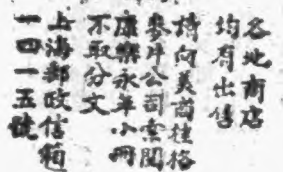 各地商店
均有出售
請向美商桂格
麥片公司索閱
康樂永年小冊
不取分文
上海郵政信箱
一四一五號